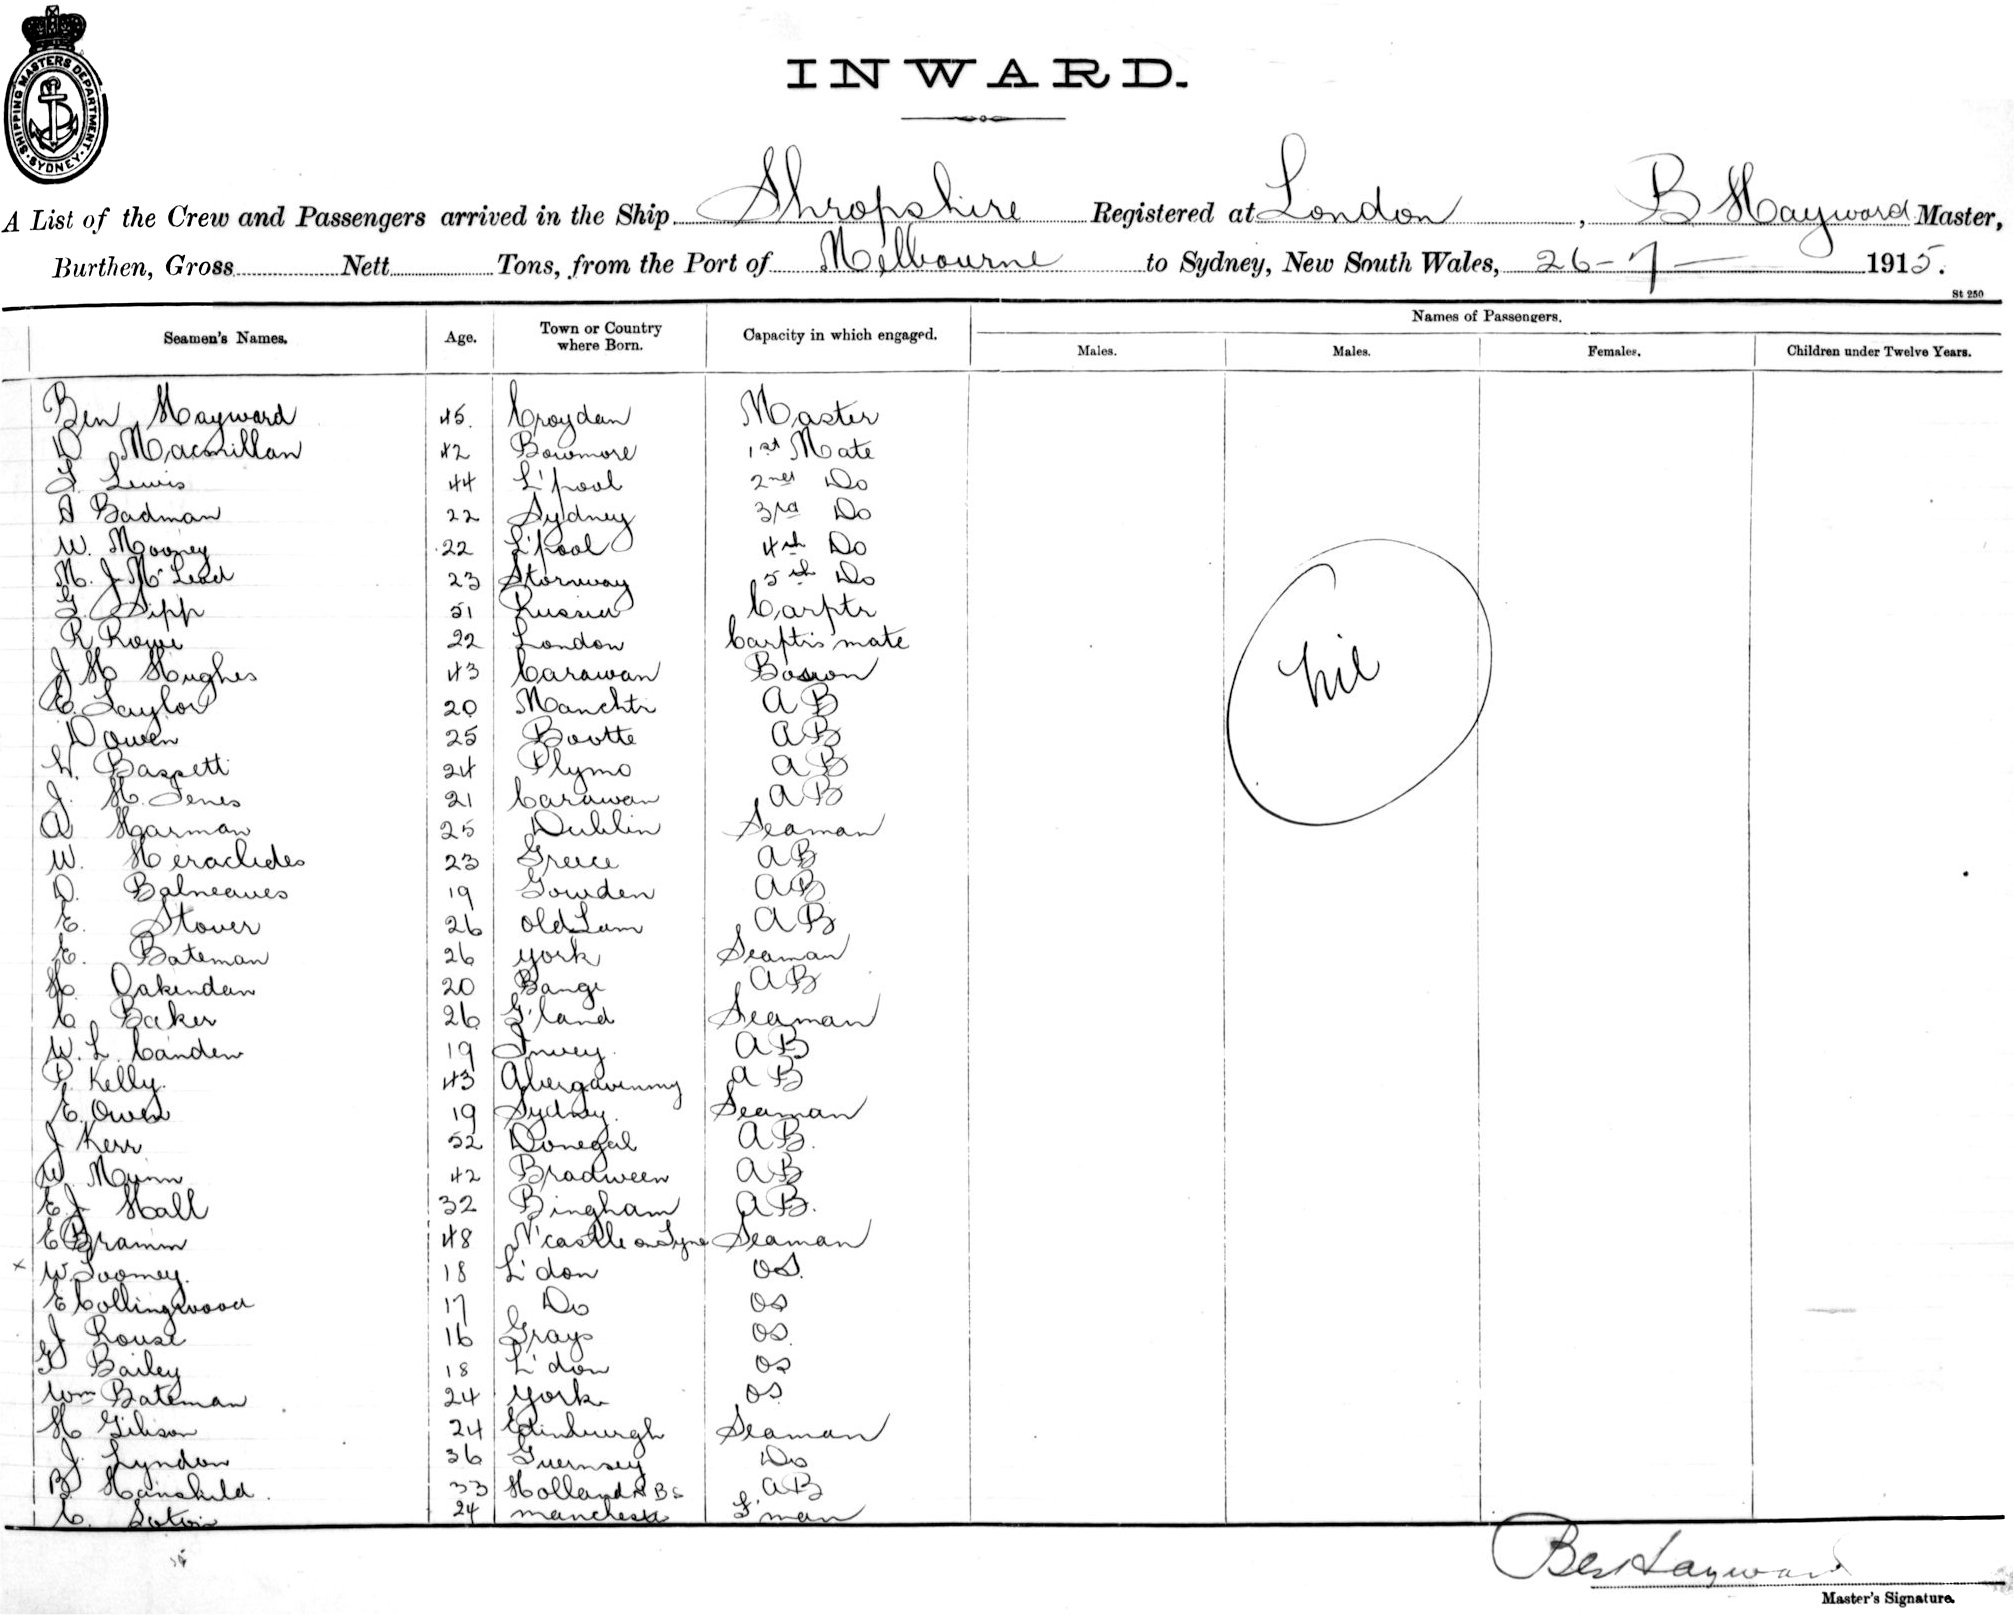 SHIPPING MASTERS DEPARTMENT
SYDNEY
INWARD.
A List of the Crew and Passengers arrived in the Ship Shropshire Registered at London, B Hayward Master,
Burthen, Gross Nett Tons, from the Port of Melbourne to Sydney, New South Wales, 26-7- 1915.
St 250
Seamen's Names. Age. Town or Country where Born. Capacity in which engaged. Names of Passengers.
Males. Males. Females. Children under Twelve Years.
Ben Hayward 45. Croydan Master
D Macmillan 42 Bowmore 1st Mate
L. Lewis 44 L'pool 2nd Do
A Badman 22 Sydney 3rd Do
W. Mooney 22 L'pool 4th Do
M. J. McLeod 23 Stornway 5th Do
G. Sipp 51 Russia Carptr
R Rowe 22 London Carptrs mate
J H Hughes 43 Carawan Boson
E. Taylor 20 Manchtr AB
D Owen 25 Bootte AB
W. Bassett 24 Plymo AB
J. H. Jenes 21 Carawan AB
A Harman 25 Dublin Seaman
W. Heraclides 23 Greece AB
D. Balneaves 19 Gowden AB
E. Stover 26 Old Lam AB
E. Bateman 26 York Seaman
H. Oakenden 20 Bange AB
C. Baker 26 G'land Seaman
W. L. Canden 19 Invey. AB
P. Kelly. 43 Abergavenny AB
E. Owen 19 Sydney. Seaman
J Kerr 52 Donegal AB.
W. Munn 42 Bradween AB
E J Hall 32 Bingham AB.
E Bramm 48 N'castle on Tyne Seaman
x W Toomey. 18 L'don OS.
E Collingwood 17 Do OS
J Rouse 16 Grays OS.
G Bailey 18 L'don OS
Wm Bateman 24 York OS
H Gibson 24 Edinburgh Seaman
J. Lyndon 36 Guernsey Do
B Hainskild. 33 Holland AB
C. 24 Manchester S'man
nil
Ben Hayward
Master's Signature.